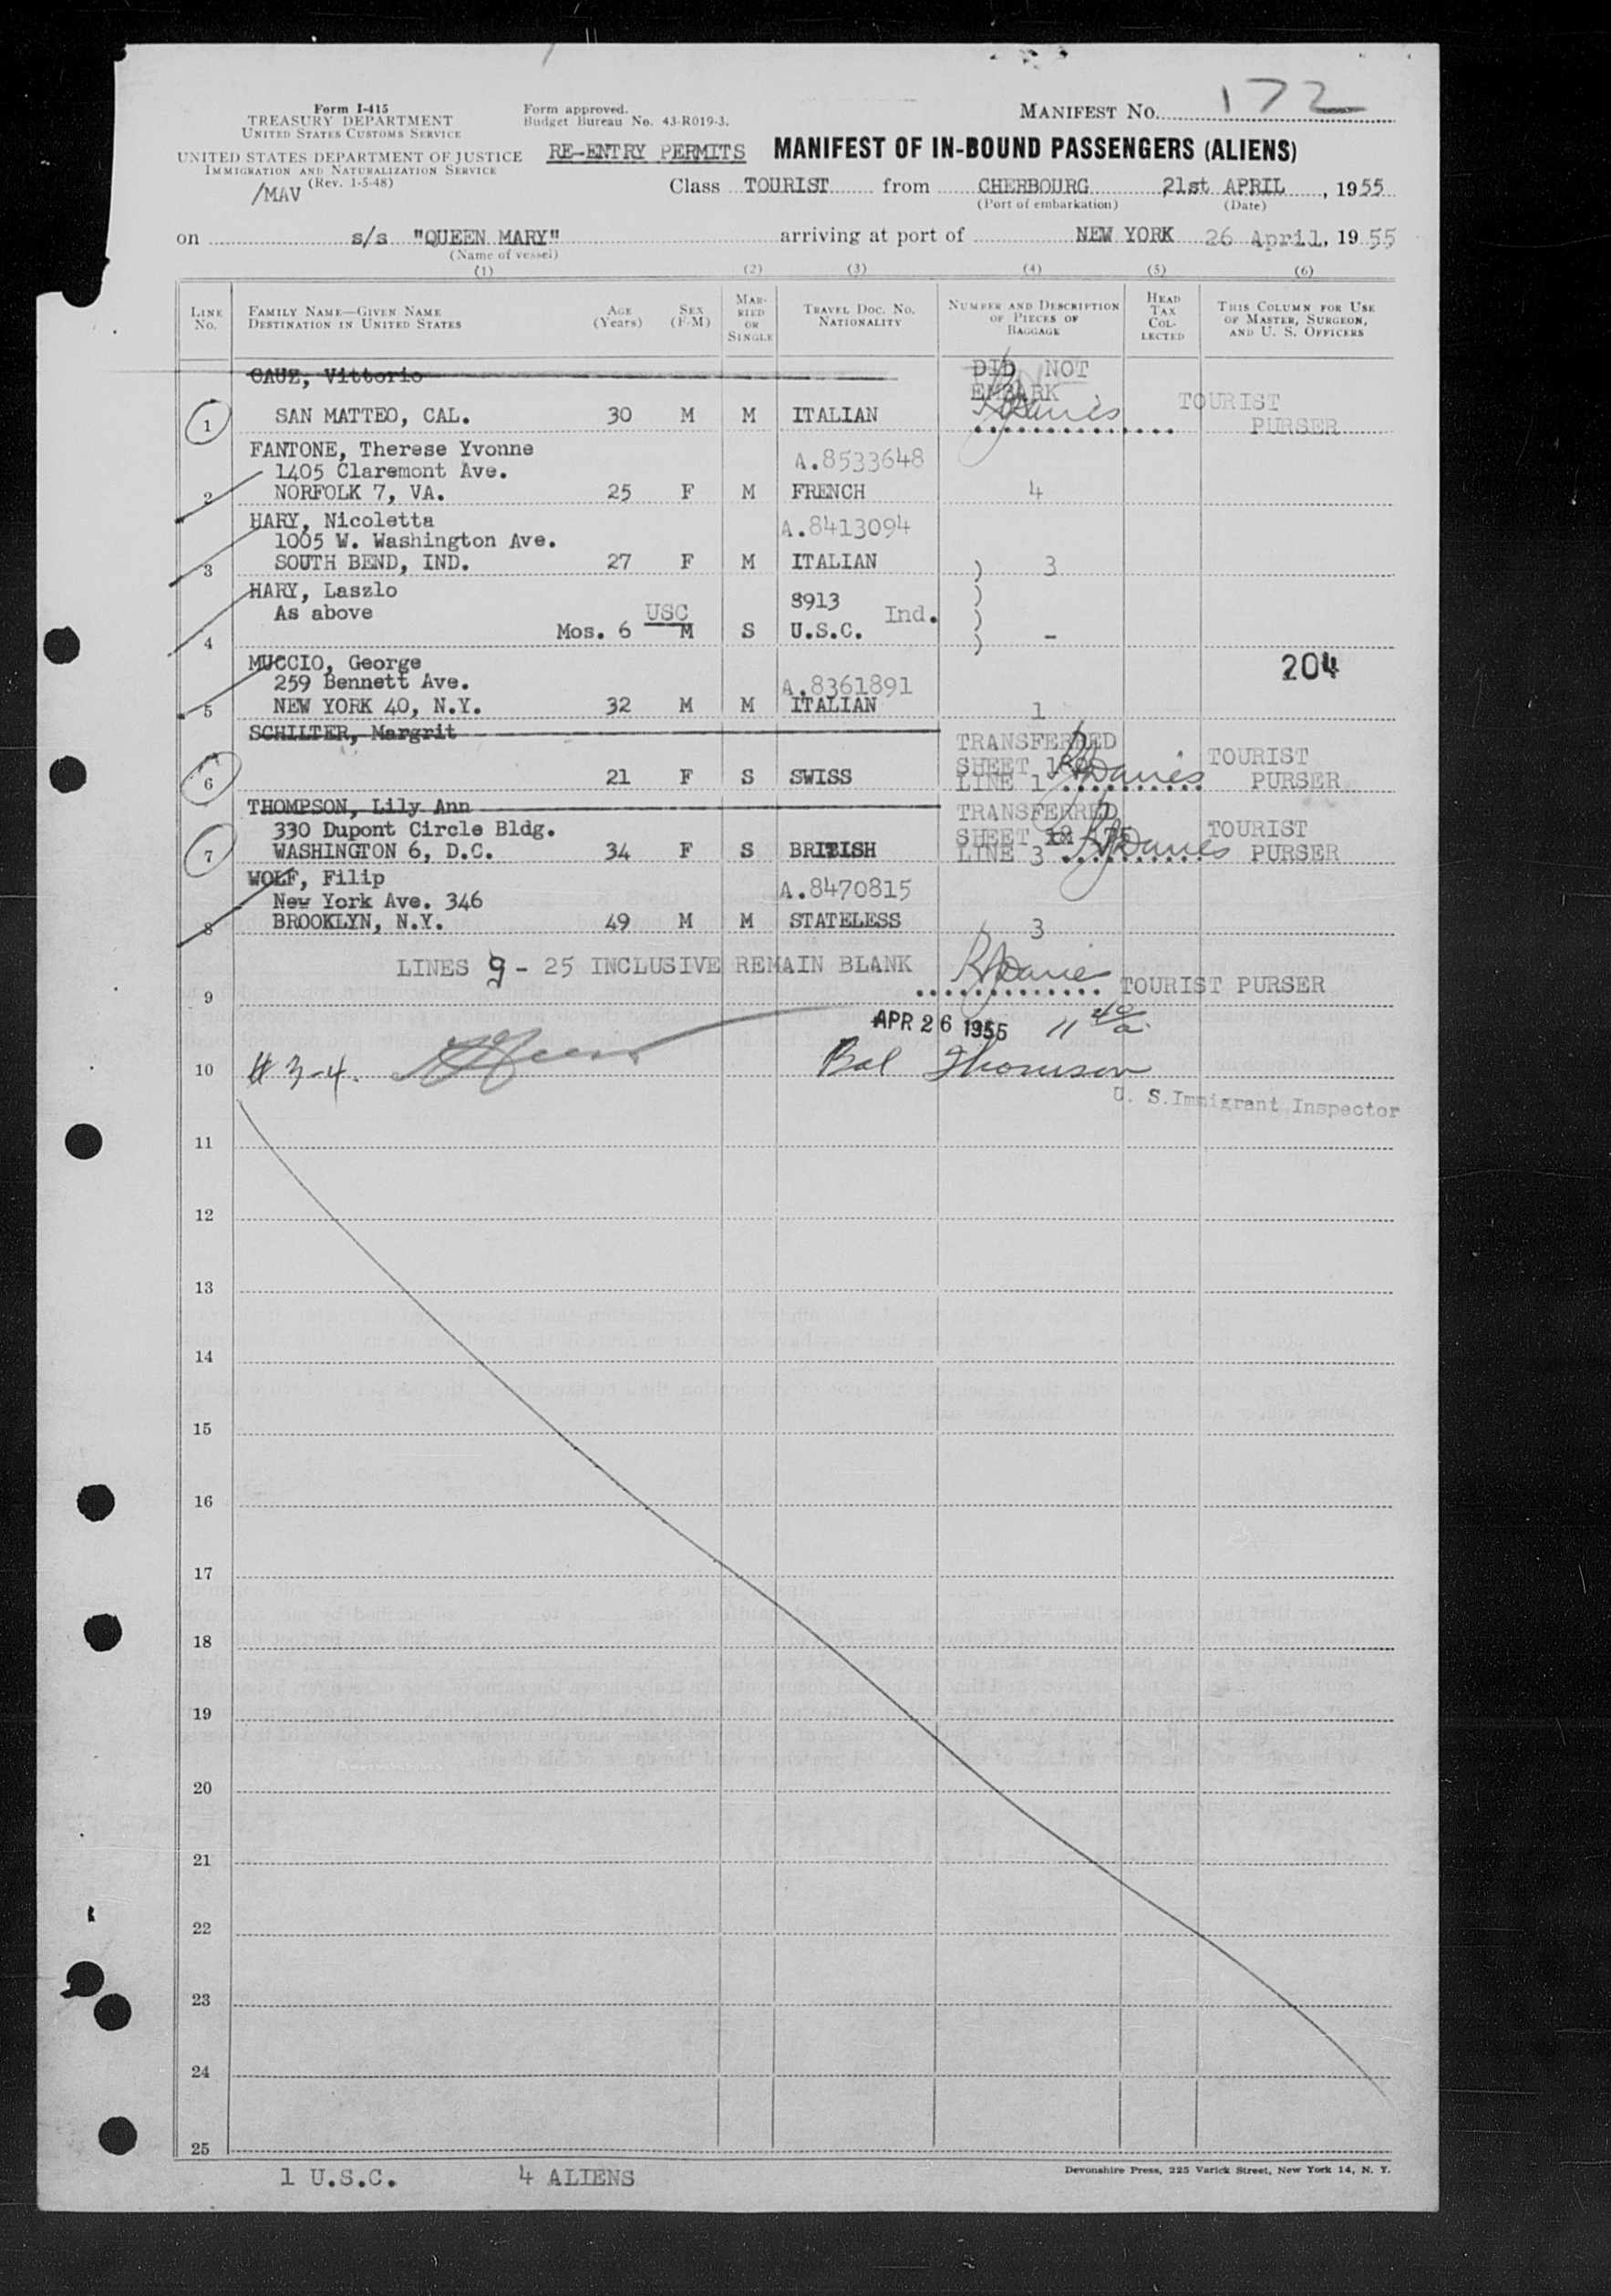 Form I-415
TREASURY DEPARTMENT
UNITED STATES CUSTOMS SERVICE
UNITED STATES DEPARTMENT OF JUSTICE
IMMIGRATION AND NATURALIZATION SERVICE
(Rev. 1-5-48)
/MAV
Form approved.
Budget Bureau No. 43-R019-3.
MANIFEST No. 172
RE-ENTRY PERMITS MANIFEST OF IN-BOUND PASSENGERS (ALIENS)
Class TOURIST from CHERBOURG 21st APRIL, 1955
(Port of embarkation) (Date)
on s/s "QUEEN MARY" arriving at port of NEW YORK 26 April, 1955
(Name of vessel)
(1) (2) (3) (4) (5) (6)
LINE No. FAMILY NAME—GIVEN NAME DESTINATION IN UNITED STATES AGE (Years) SEX (F-M) MARRIED OR SINGLE TRAVEL DOC. NO. NATIONALITY NUMBER AND DESCRIPTION OF PIECES OF BAGGAGE HEAD TAX COLLECTED THIS COLUMN FOR USE OF MASTER, SURGEON, AND U. S. OFFICERS
CAUZ, Vittorio DID NOT
EMBARK
1 SAN MATTEO, CAL. 30 M M ITALIAN RJDavies TOURIST
PURSER
FANTONE, Therese Yvonne A.8533648
1405 Claremont Ave.
2 NORFOLK 7, VA. 25 F M FRENCH 4
HARY, Nicoletta A.8413094
1005 W. Washington Ave.
3 SOUTH BEND, IND. 27 F M ITALIAN ) 3
HARY, Laszlo 8913 )
As above USC Ind. )
4 Mos. 6 M S U.S.C. ) -
MUCCIO, George 204
259 Bennett Ave. A.8361891
5 NEW YORK 40, N.Y. 32 M M ITALIAN 1
SCHILTER, Margrit TRANSFERRED
SHEET TOURIST
6 21 F S SWISS LINE 1 RJDavies PURSER
THOMPSON, Lily Ann TRANSFERRED
330 Dupont Circle Bldg. SHEET 175 TOURIST
7 WASHINGTON 6, D.C. 34 F S BRITISH LINE 3 RJDavies PURSER
WOLF, Filip A.8470815
New York Ave. 346
8 BROOKLYN, N.Y. 49 M M STATELESS 3
LINES 9 - 25 INCLUSIVE REMAIN BLANK RJDavies
9 TOURIST PURSER
APR 26 1955 11 40/a
10 # 3-4. Bal Thomson
U. S. Immigrant Inspector
11
12
13
14
15
16
17
18
19
20
21
22
23
24
25
1 U.S.C. 4 ALIENS
Devonshire Press, 225 Varick Street, New York 14, N. Y.